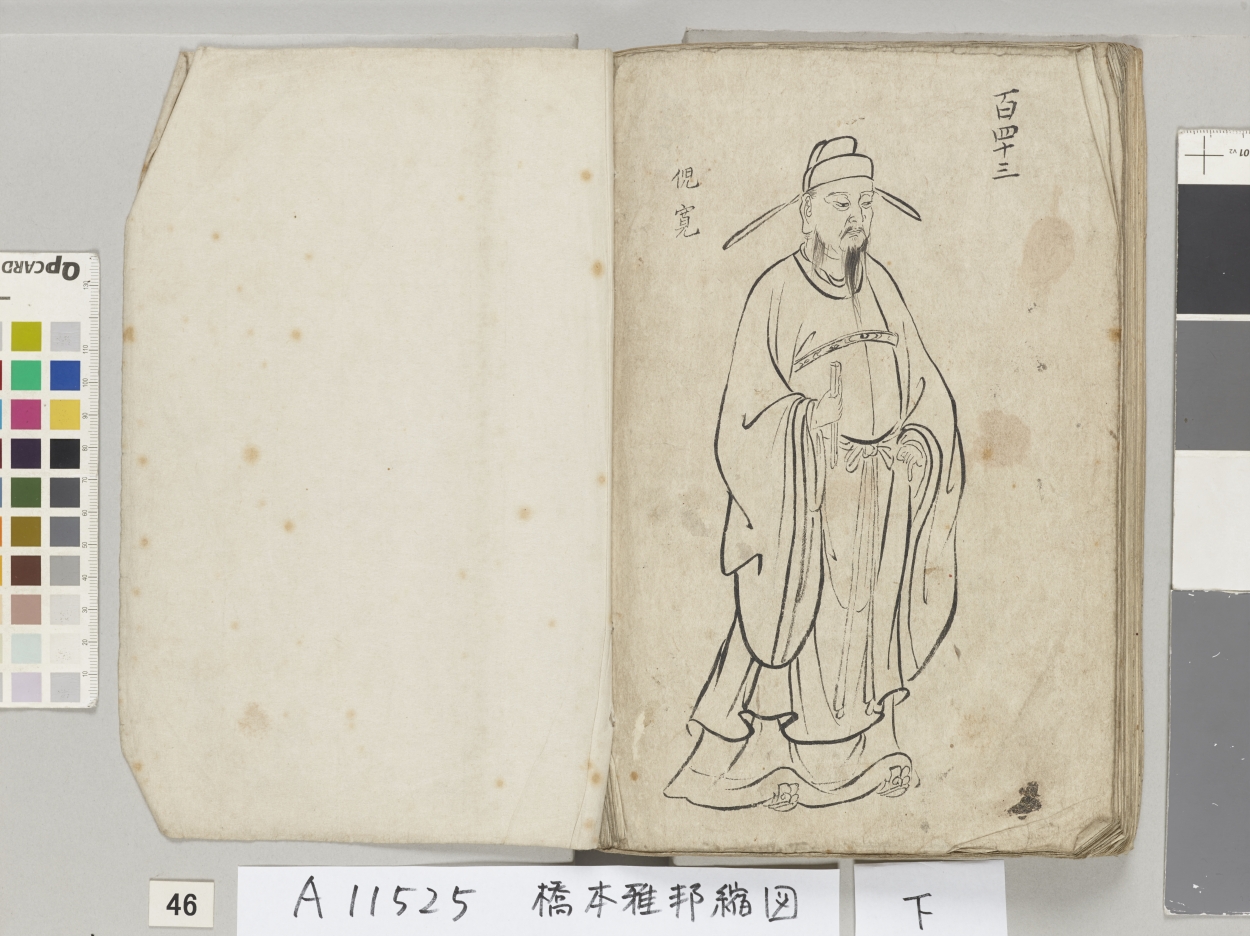 百四十三
倪寛
QPCARD
46
A11525 橋本雅邦縮図
下